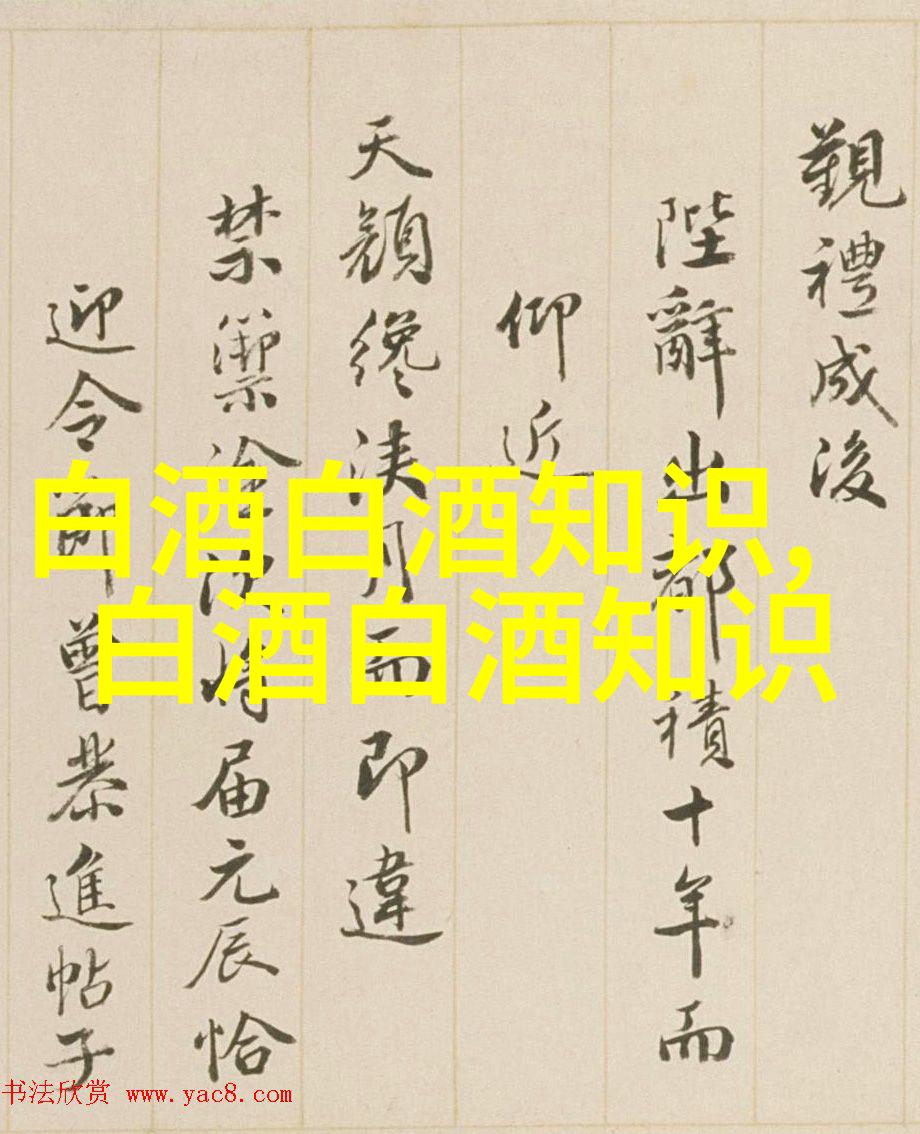 觀禮成後
陛辭出都積十年而
仰近
天顏纔浹月而即違
禁籞塗次將届元辰恰
迎令節曾恭進帖子
白酒白酒知识,
白酒白酒知识
书法欣赏 www.yac8.com